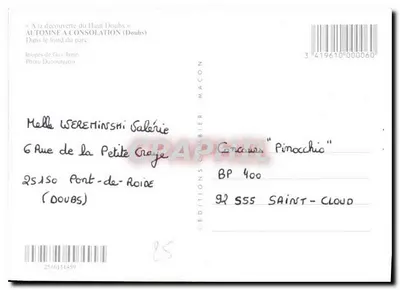 « A la découverte du Haut Doubs »
AUTOMNE A CONSOLATION (Doubs)
Dans le fond du parc.
3 419610 000060
EDITIONS MACON
Melle WEREMINSHI Valérie
6 Rue de la Petite Craye
25150 Pont-de-Roide
(DOUBS)
Concours "Pinocchio"
BP 400
92 555 SAINT-CLOUD
25